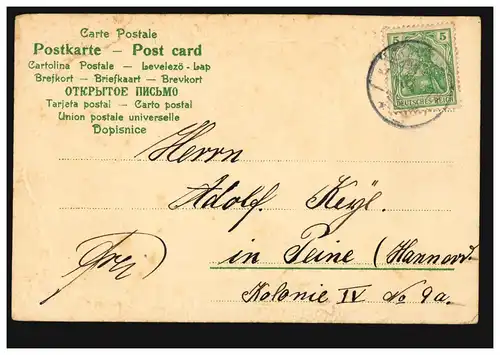 Carte Postale
Postkarte — Post card
Cartolina Postale — Levelező-Lap
Brefkort — Briefkaart — Brevkort
ОТКРЫТОЕ ПИСЬМО
Tarjeta postal — Carto postal
Union postale universelle
Dopisnice
5 5
DEUTSCHES REICH
Herrn
Adolf Keyl.
in Peine (Hannov.
frei
Kolonie IV No 9a.